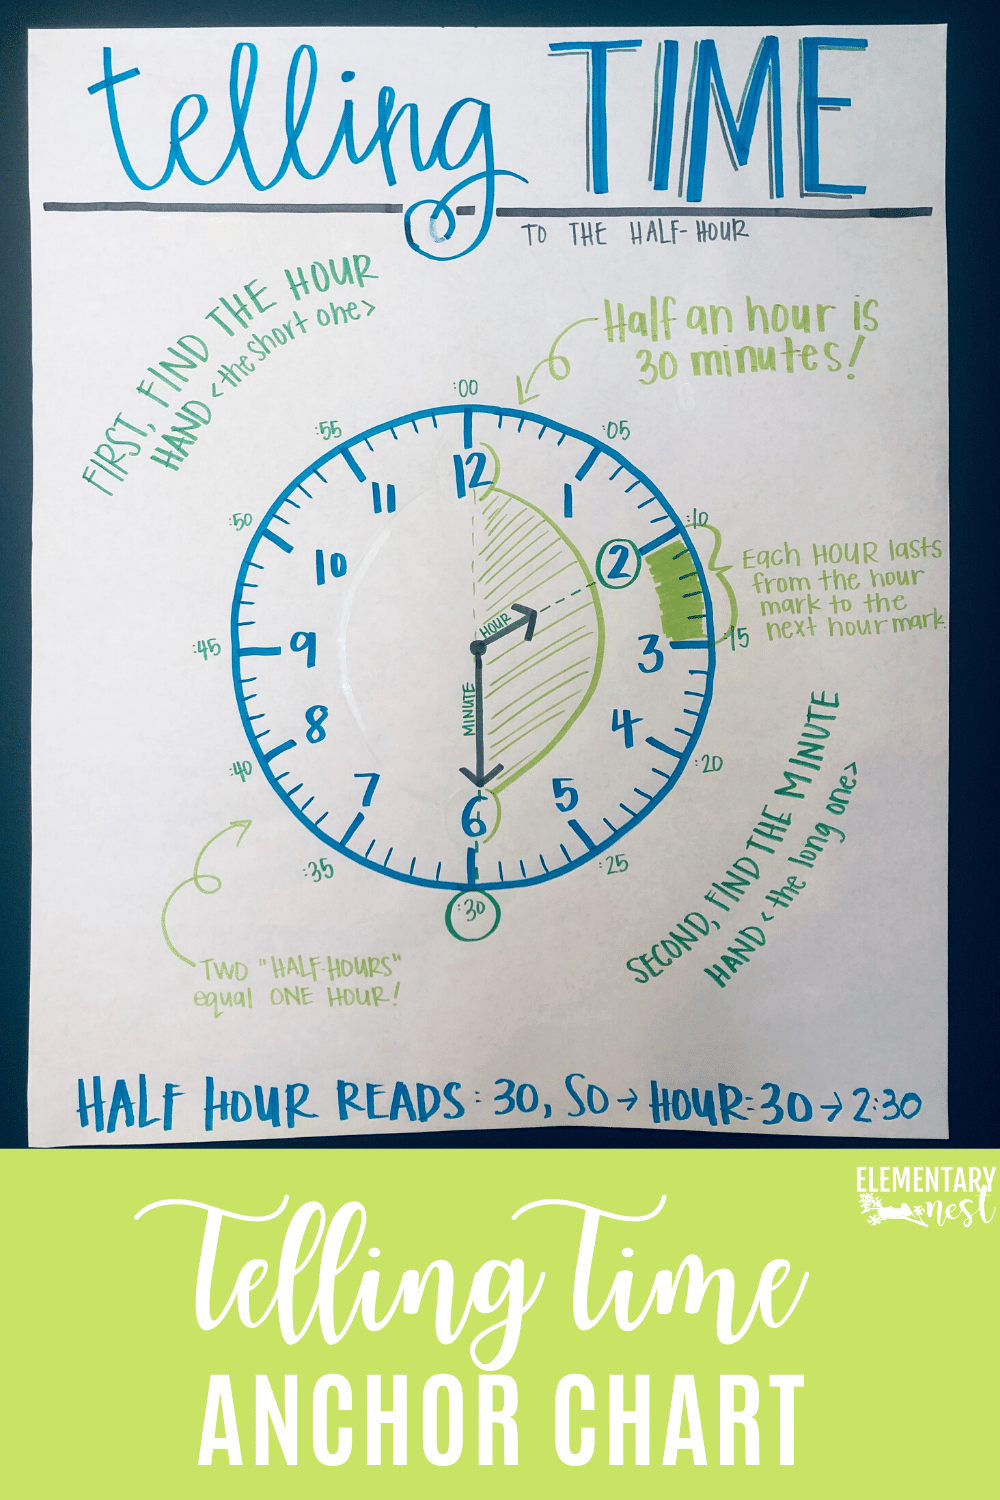 telling TIME
TO THE HALF-HOUR
FIRST, FIND THE HOUR
HAND <the short one>
Half an hour is
30 minutes!
:00
:55
:05
12
11
1
:50
:10
10
2
Each HOUR lasts
from the hour
mark to the
next hour mark.
HOUR
:45
9
3
:15
MINUTE
8
4
:40
:20
7
5
6
:35
:25
:30
SECOND, FIND THE MINUTE
HAND <the long one>
TWO "HALF-HOURS"
equal ONE HOUR!
HALF HOUR READS :30, SO → HOUR:30 → 2:30
ELEMENTARY
nest
Telling Time
ANCHOR CHART